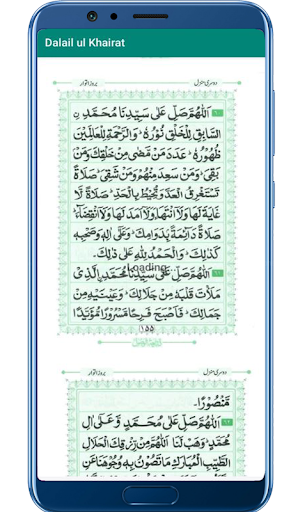 Dalail ul Khairat
دوسری منزل بروز اتوار
اَللّٰهُمَّ صَلِّ عَلٰى سَيِّدِنَا مُحَمَّدِ نِ
السَّابِقِ لِلْخَلْقِ نُوْرُهٗ وَالرَّحْمَةُ لِلْعَالَمِيْنَ
ظُهُوْرُهٗ عَدَدَ مَنْ مَّضٰى مِنْ خَلْقِكَ وَمَنْ
بَقِىَ وَمَنْ سَعِدَ مِنْهُمْ وَمَنْ شَقِىَ صَلَاةً
تَسْتَغْرِقُ الْعَدَّ وَتُحِيْطُ بِالْحَدِّ صَلَاةً لَّا
غَايَةَ لَهَا وَلَا انْتِهَآءَ وَلَآ اَمَدَ لَهَا وَلَا انْقِضَآءَ
صَلَاةً دَآئِمَةً بِدَوَامِكَ وَعَلٰى اٰلِهٖ وَصَحْبِهٖ
كَذٰلِكَ وَالْحَمْدُ لِلّٰهِ عَلٰى ذٰلِكَ
Loading
اَللّٰهُمَّ صَلِّ عَلٰى سَيِّدِنَا مُحَمَّدِ الَّذِىْ
مَلَأْتَ قَلْبَهٗ مِنْ جَلَالِكَ وَعَيْنَيْهِ مِنْ
جَمَالِكَ فَاَصْبَحَ فَرِحًا مَّسْرُوْرًا مُّؤَيَّدًا
١٥٥
دوسری منزل بروز اتوار
مَّنْصُوْرًا
اَللّٰهُمَّ صَلِّ عَلٰى مُحَمَّدٍ وَّعَلٰٓى اٰلِ
مُحَمَّدٍ وَّهَبْ لَنَا اَللّٰهُمَّ مِنْ رِّزْقِكَ الْحَلَالِ
الطَّيِّبِ الْمُبَارَكِ مَا تَصُوْنُ بِهٖ وُجُوْهَنَا عَنِ